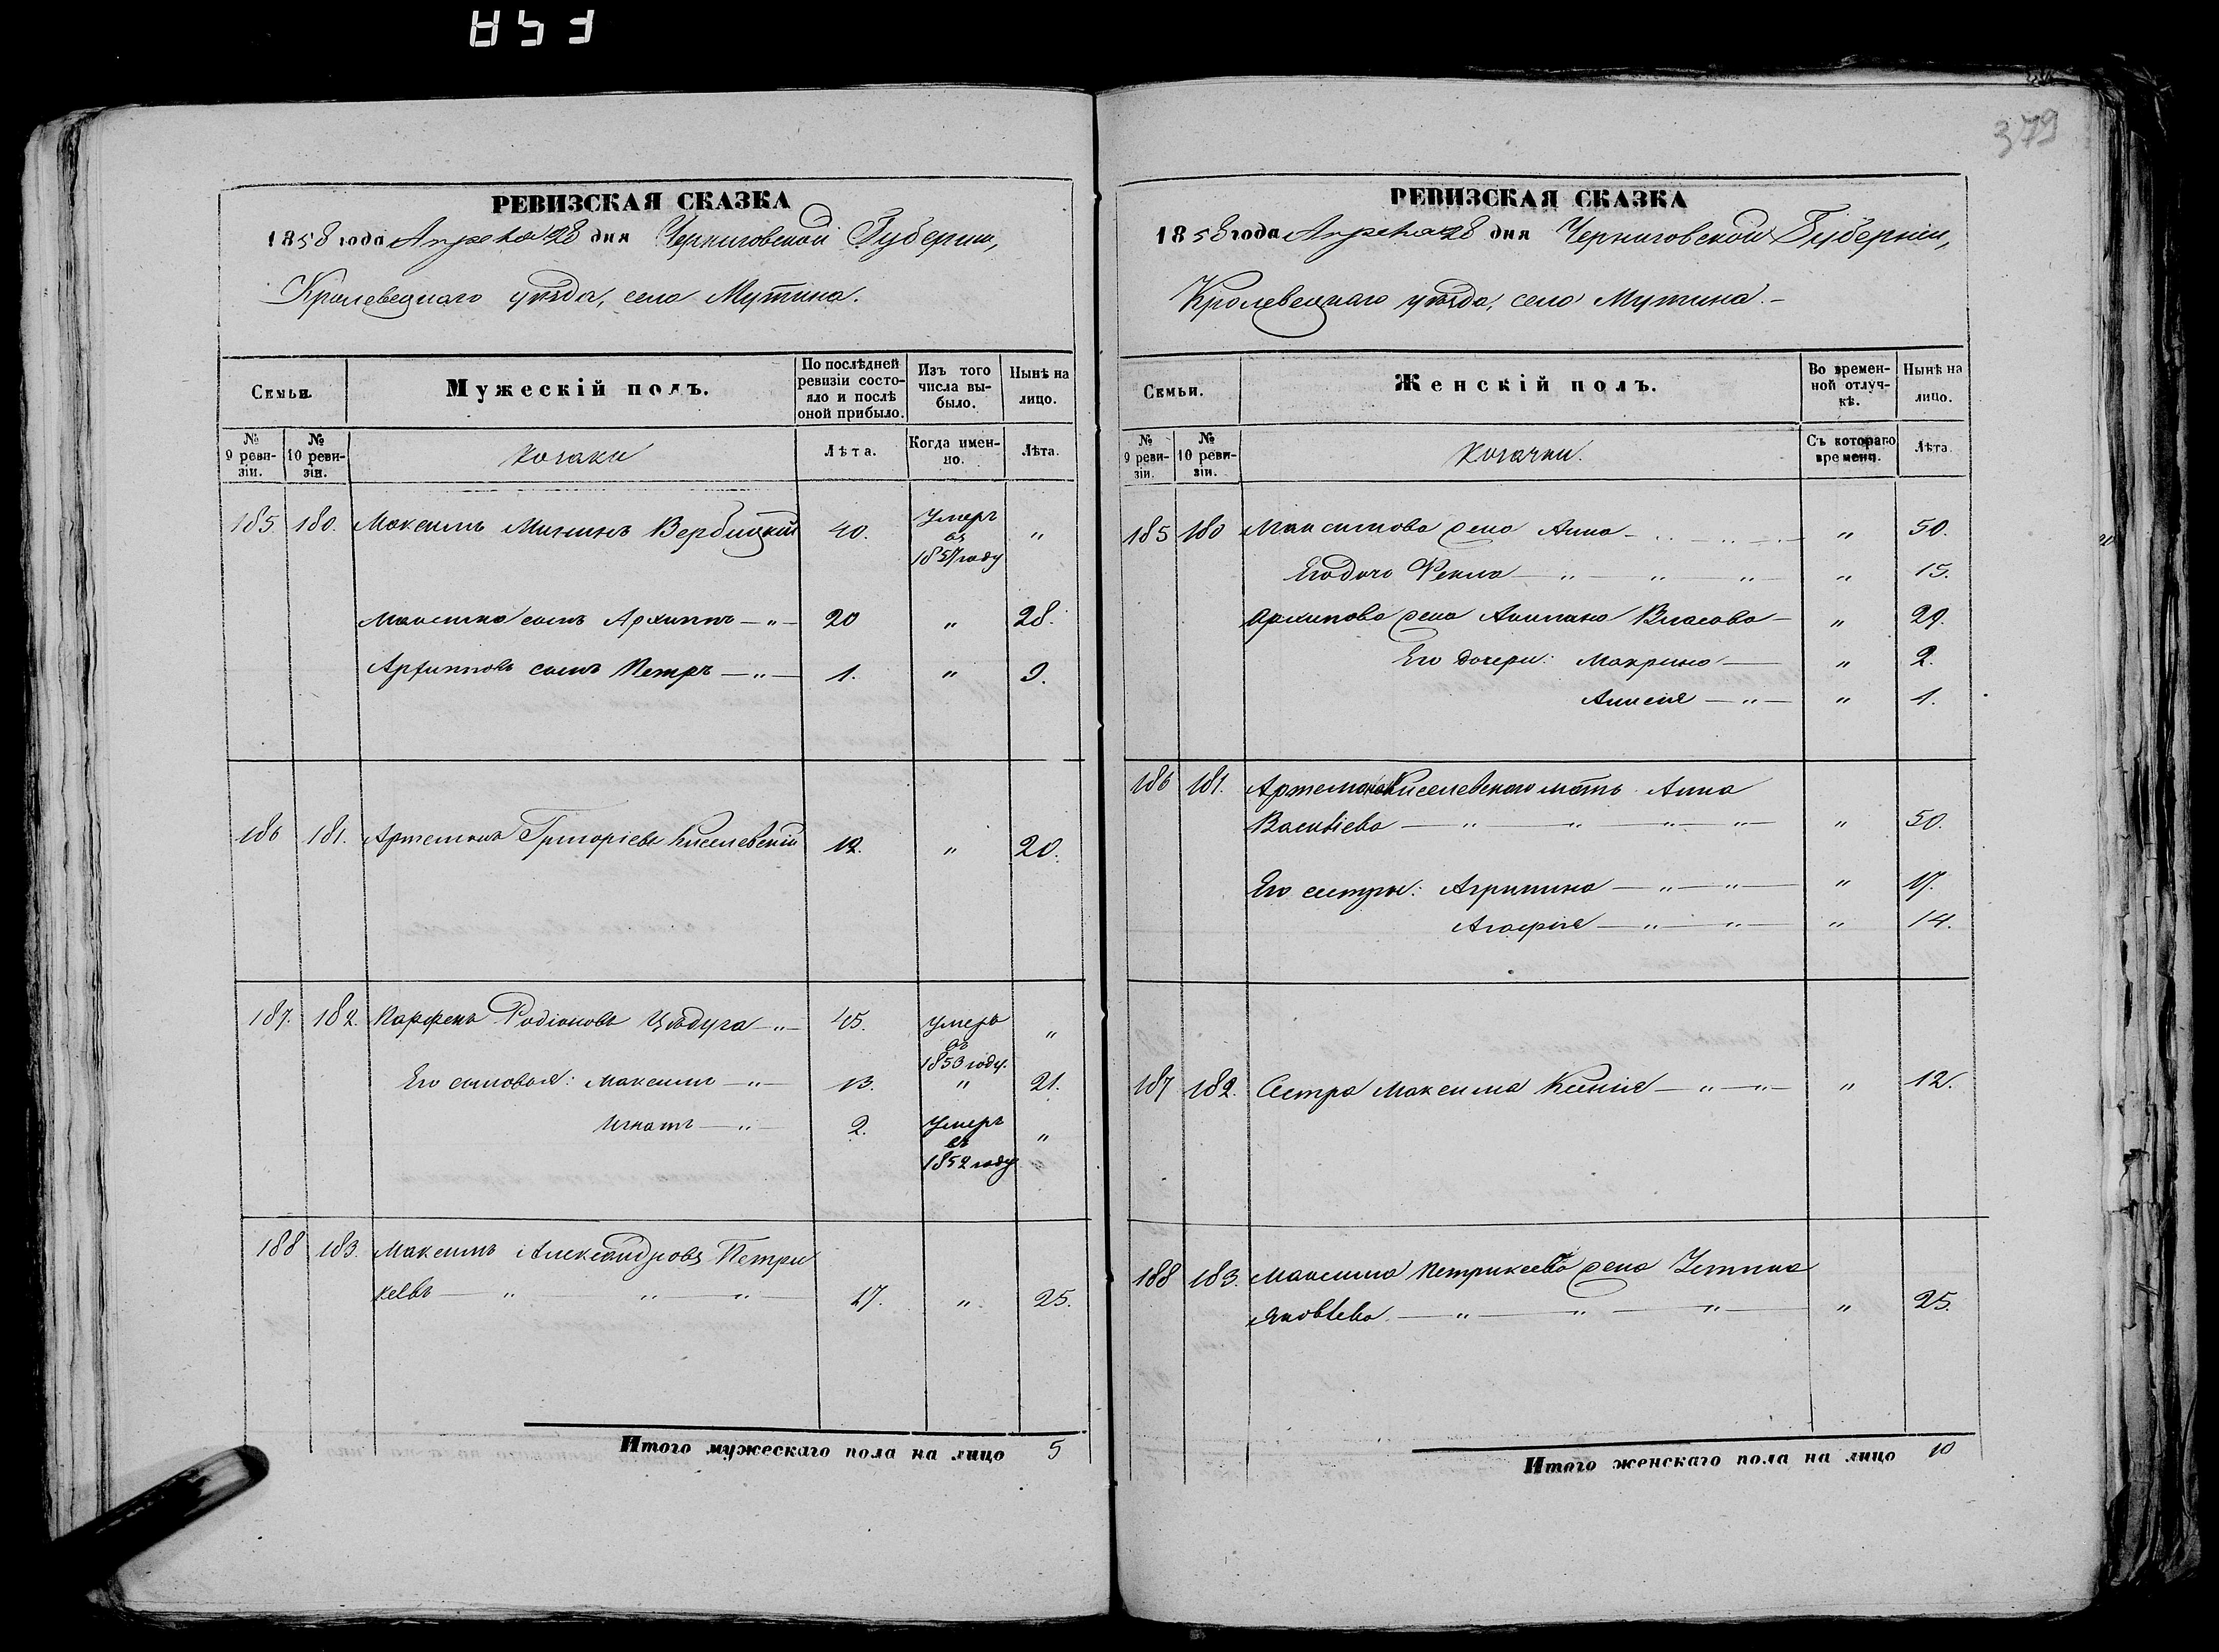 853
379
РЕВИЗСКАЯ СКАЗКА
1858 года Апреля 28 дня Черниговской Губернии,
Кролевецкаго уѣзда, села Мутина.
Семьи.
Мужескій полъ.
По послѣдней ревизіи состояло и послѣ оной прибыло.
Изъ того числа выбыло.
Нынѣ на лицо.
№ 9 ревизіи.
№ 10 ревизіи.
Козаки
Лѣта.
Когда именно.
Лѣта.
185. 180. Максимъ Вербицкій 40. Умеръ въ 1857 году "
Максима сынъ Архиппъ — " — 20 " 28.
Архипповъ сынъ Петръ — " — 1. " 9.
186 181. Артемонъ Григорьевъ Киселевскій 12. " 20.
187. 182. Парфенъ Родіоновъ Цѣдуга — " — 45. Умеръ въ 1853 году. "
Его сыновья: Максимъ — " — 13. " 21.
Игнатъ — " — 2. Умеръ въ 1852 году "
188 183. Максимъ Александровъ Петри
кеевъ — " — " — " — 17. " 25.
Итого мужескаго пола на лицо 5
РЕВИЗСКАЯ СКАЗКА
1858 года Апреля 28 дня Черниговской Губерніи,
Кролевецкаго уѣзда, села Мутина. –
Семьи.
Женскій полъ.
Во временной отлучкѣ.
Нынѣ на лицо.
№ 9 ревизіи.
№ 10 ревизіи.
Козачки.
Съ котораго времени.
Лѣта
185 180 Максимова жена Анна " 50.
Его дочь Фекла — " — " — " — " 15.
Архипова жена Власова — " 29.
Его дочери: Макрина — " 2.
Анисія — " — " 1.
186 181. Артемона Киселевскаго мать Анна
Васильева — " — " — " — " — " 50.
Его сестры: Агрипина — " — " — " 17.
Агафія — " — " — " 14.
187 182. Сестра Максима Ксенія — " — " — " 12.
188 183. Максима Петрикеева жена Устина
Яковлева. — " — " — " — " 25.
Итого женскаго пола на лицо 10